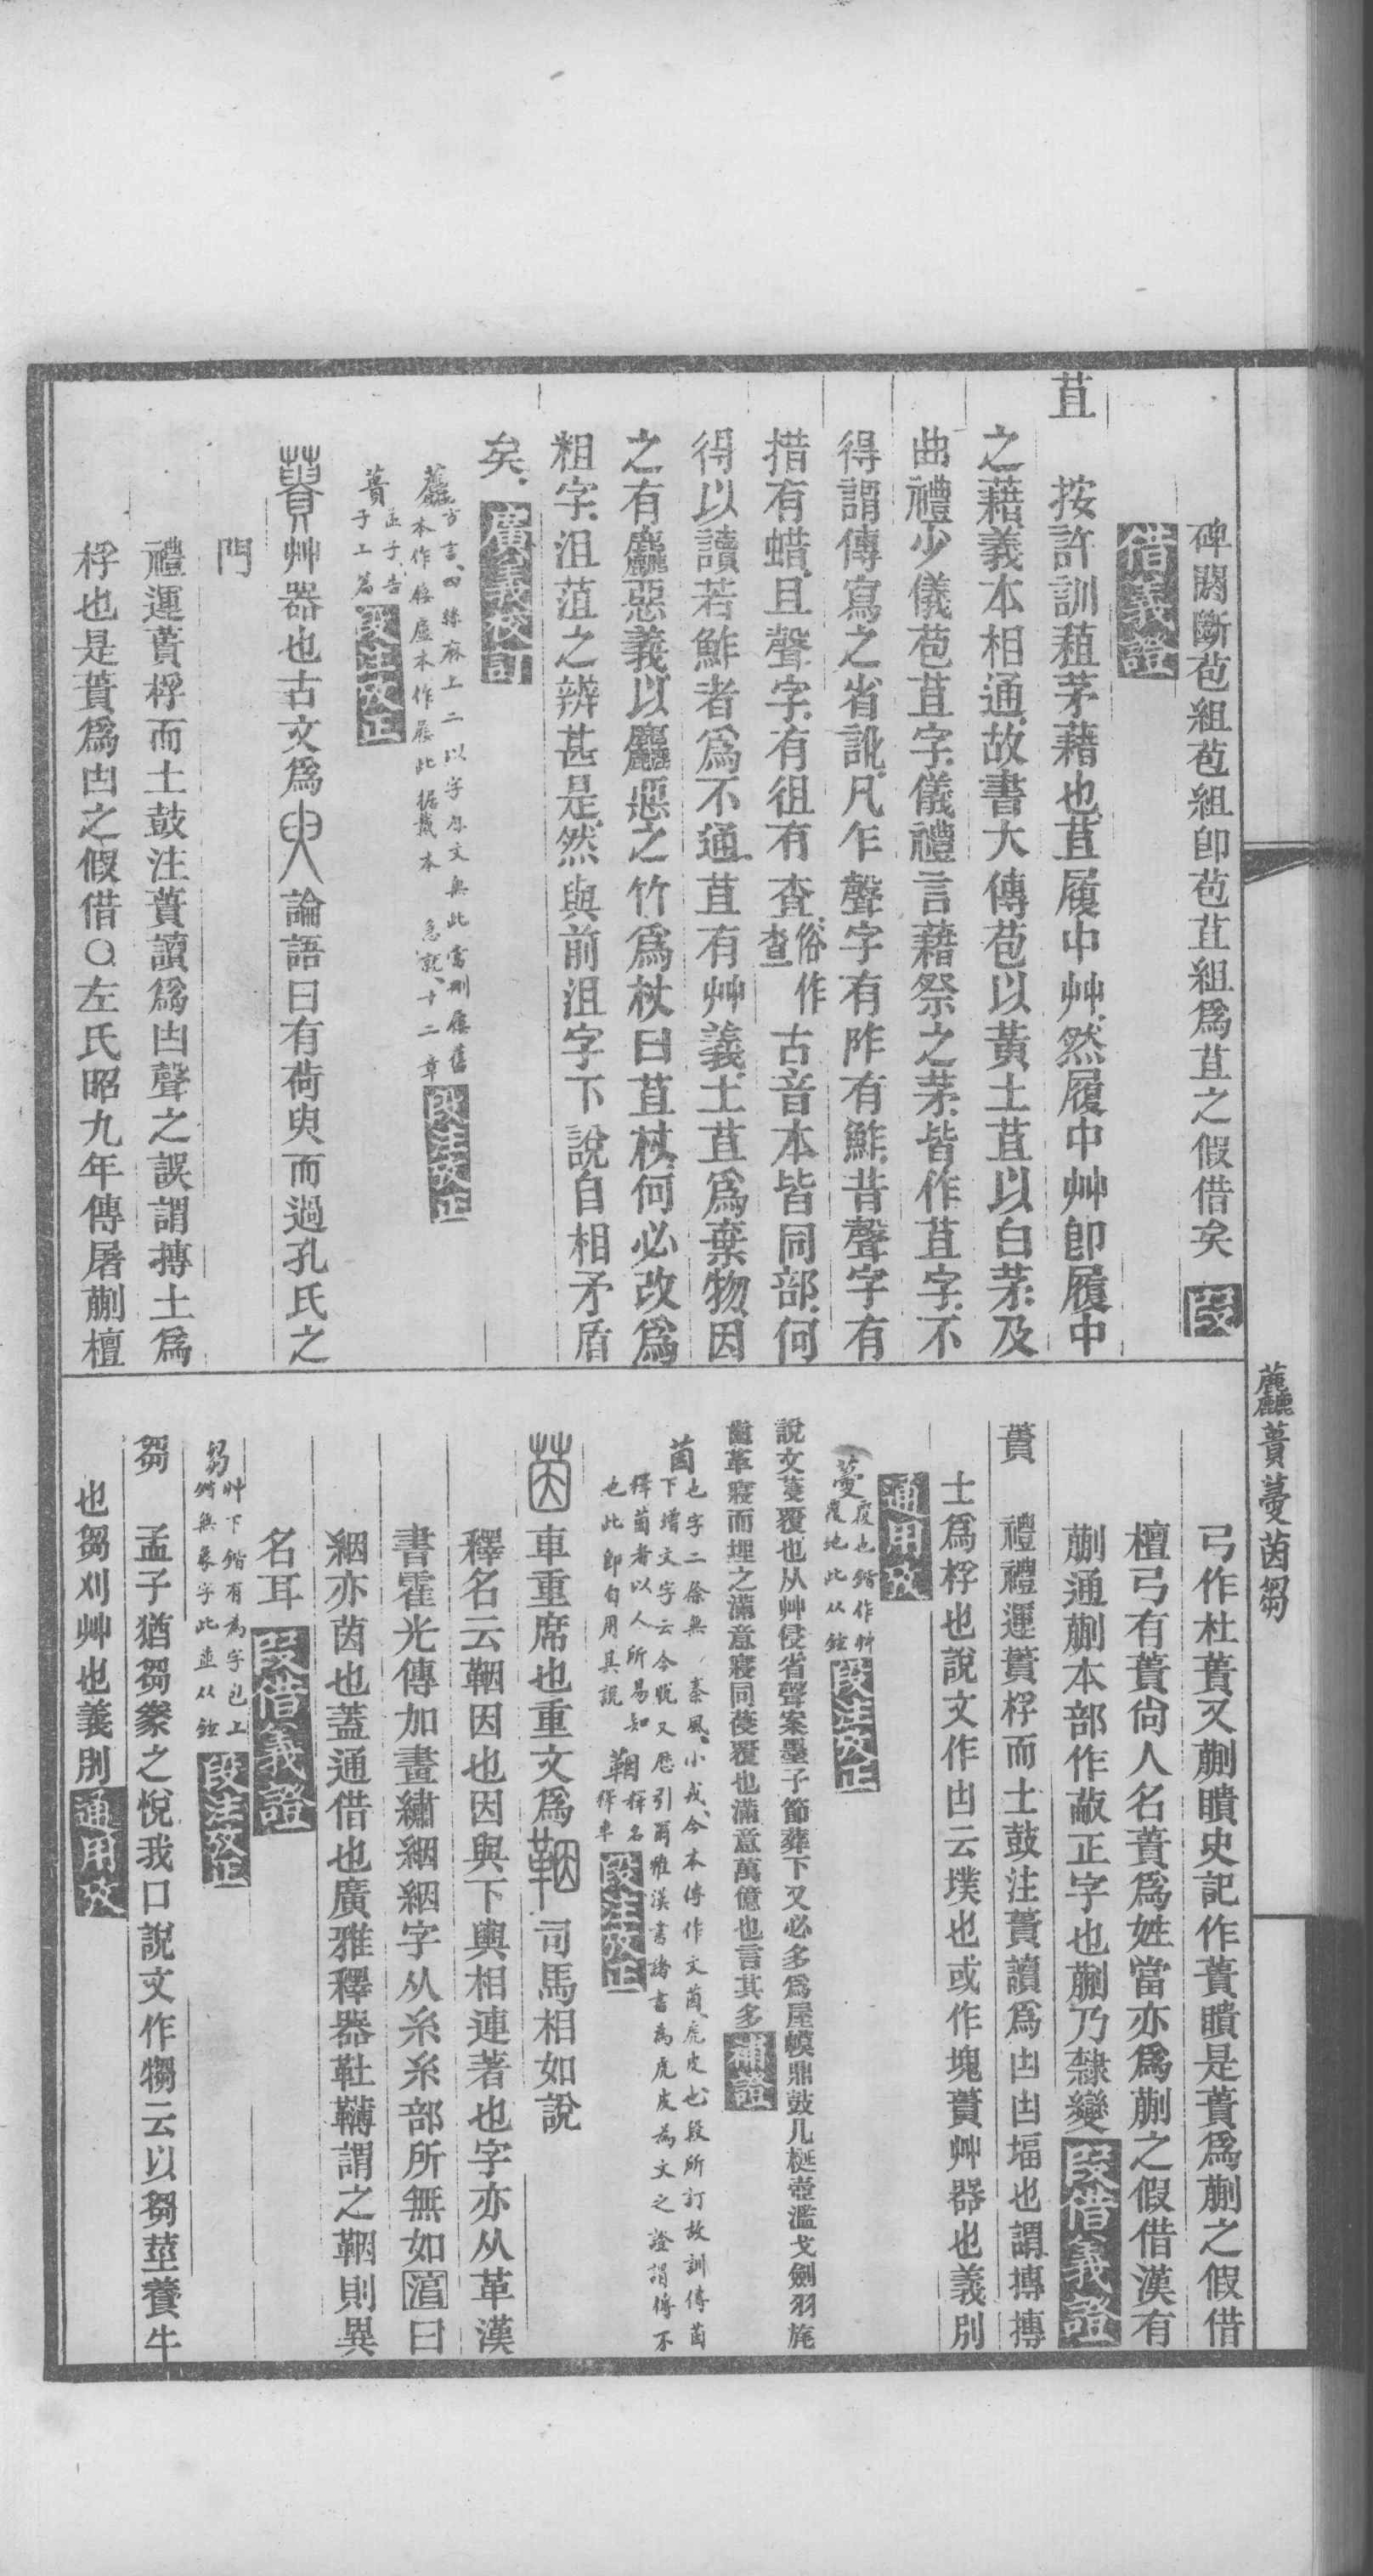 碑闕斷苞組苞組卽苞苴組爲苴之假借矣 段
借義證
苴 按許訓蒩茅藉也苴履中艸然履中艸卽履中
之藉義本相通故書大傳苞以黃土苴以白茅及
曲禮少儀苞苴字儀禮言藉祭之茅皆作苴字不
得謂傳寫之省訛凡乍聲字有阼有鮓昔聲字有
措有蜡且聲字有徂有查俗作査古音本皆同部何
得以讀若鮓者爲不通苴有艸義土苴爲棄物因
之有麤惡義以麤惡之竹爲杖曰苴杖何必改爲
粗字沮菹之辨甚是然與前沮字下說自相矛盾
矣 廣義校訂
方言四絲麻上二以字原文無此當刪屨舊
本作屨盧本作屨此據戴本 急就十二章 段注攷正
蕢 孟子告
子上篇 段注攷正
蕢艸器也古文爲臾論語曰有荷臾而過孔氏之
門
禮運蕢桴而土鼓注蕢讀爲凷聲之誤謂摶土爲
桴也是蕢爲凷之假借○左氏昭九年傳屠蒯檀
蕢蔓茵芻
弓作杜蕢又蒯聵史記作蕢聵是蕢爲蒯之假借
檀弓有蕢尙人名蕢爲姓當亦爲蒯之假借漢有
蒯通蒯本部作蔽正字也蒯乃隸變 段借義證
蕢 禮禮運蕢桴而土鼓注蕢讀爲凷凷堛也謂摶摶
土爲桴也說文作凷云墣也或作塊蕢艸器也義別
通用攷
覆也鍇作艸
覆地此从鉉 段注攷正
說文蔓覆也从艸侵省聲案墨子節葬下又必多爲屋幙鼎鼓几梴壺濫戈劍羽旄
齒革寢而埋之滿意寢同葠覆也滿意萬億也言其多 補證
茵 也字二徐無 秦風小戎今本傳作文茵虎皮也段所訂故訓傳茵
下增文字云今脫又歷引爾雅漢書諸書爲虎皮爲文之證謂傳不
釋茵者以人所易知
也此卽自用其說 鞇 釋名
釋車 段注攷正
茵車重席也重文爲鞇司馬相如說
釋名云鞇因也因與下輿相連著也字亦从革漢
書霍光傳加畫繡絪絪字从糸糸部所無如湻曰
絪亦茵也蓋通借也廣雅釋器靯䪙謂之鞇則異
名耳 段借義證
芻 艸下鍇有爲字包上
鍇無象字此並从鉉 段注攷正
芻 孟子猶芻豢之悅我口說文作犓云以芻莖養牛
也芻刈艸也義別 通用攷